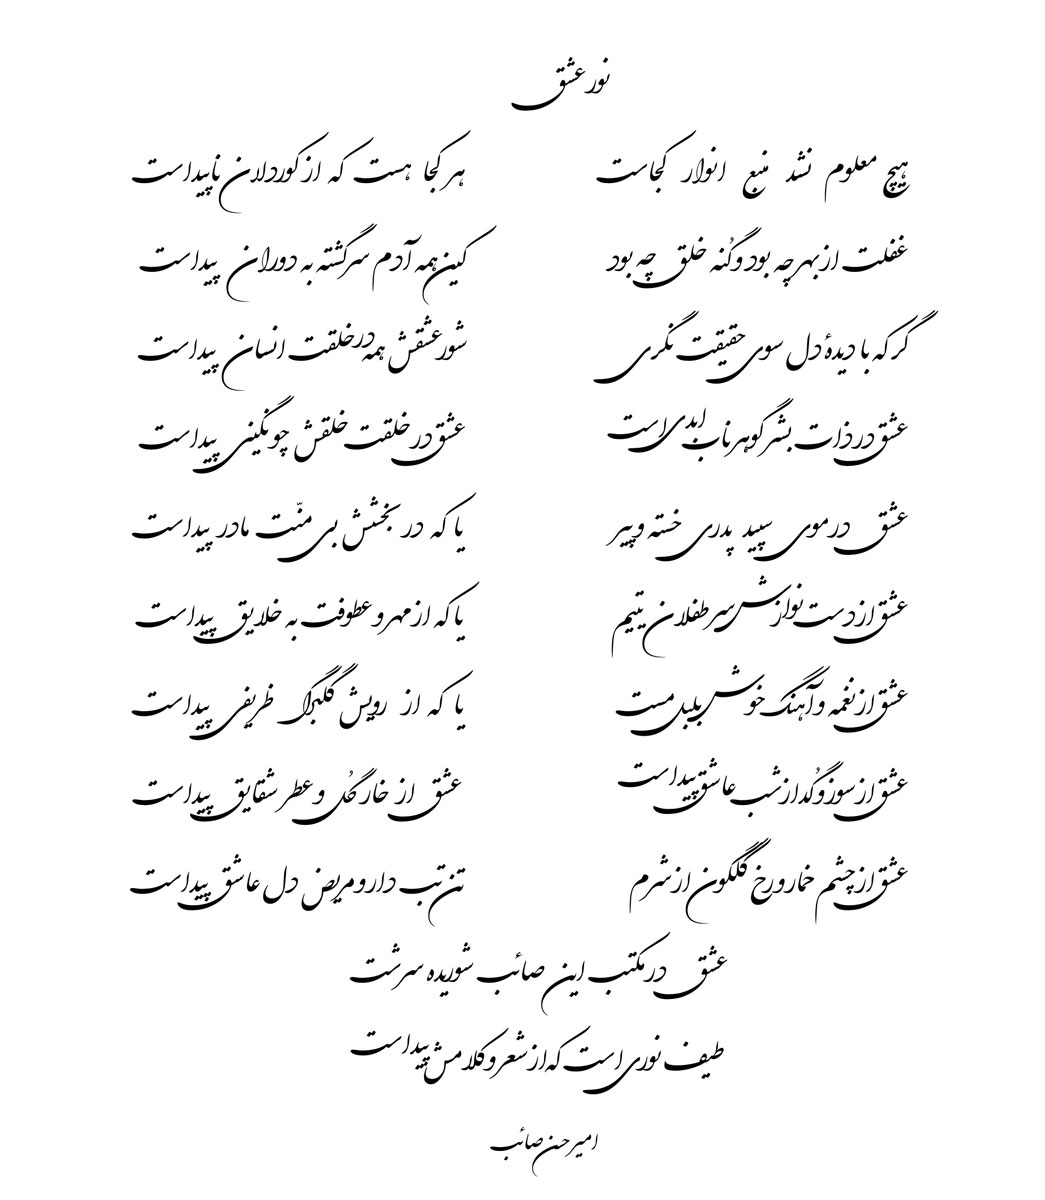 نور عشق
هیچ معلوم نشد منبع انوار کجاست هر کجا هست که از کوردلان ناپیداست
غفلت از بهر چه بود و گنه خلق چه بود کین همه آدم سرگشته به دوران پیداست
گر که با دیدهٔ دل سوی حقیقت نگری شور عشقش همه در خلقت انسان پیداست
عشق در ذات بشر گوهر ناب ابدی است عشق در خلقت خلقش چو نگینی پیداست
عشق در موی سپید پدری خسته و پیر یا که در بخشش بی منّت مادر پیداست
عشق از دست نوازش سر طفلان یتیم یا که از مهر و عطوفت به خلایق پیداست
عشق از نغمه و آهنگ خوش بلبل مست یا که از رویش گلبرگ ظریفی پیداست
عشق از سوز و گُداز شب عاشق پیداست عشق از خار گُل و عطر شقایق پیداست
عشق از چشم خمار و رخ گلگون از شرم تن تب دار و مریض دل عاشق پیداست
عشق در مکتب این صائب شوریده سرشت
طیف نوری است که از شعر و کلامش پیداست
امیرحسن صائب